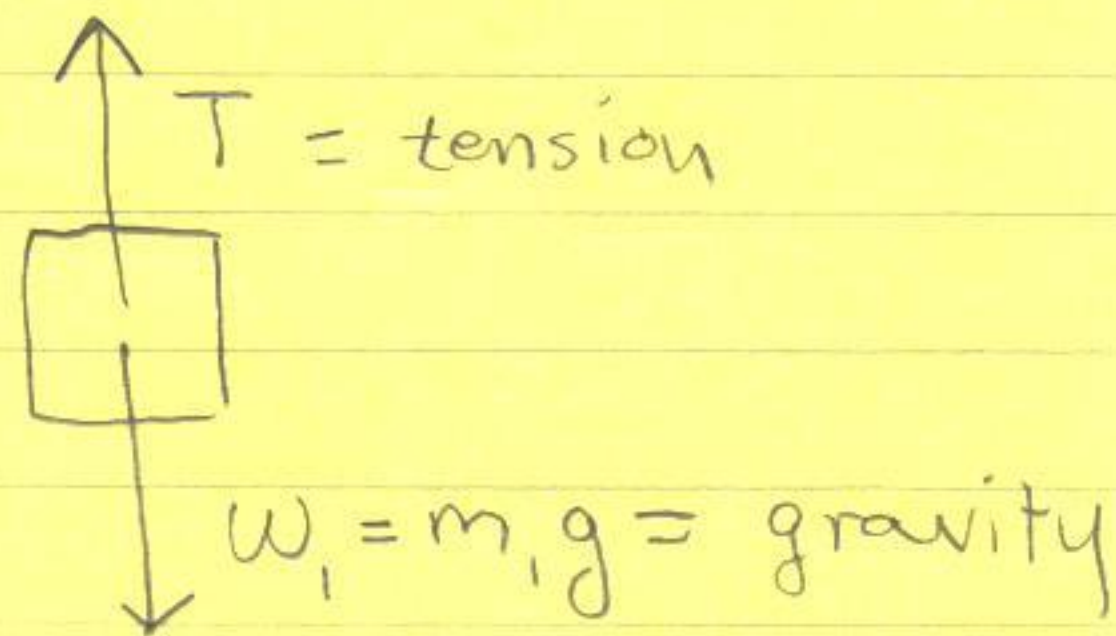 T = tension
w₁ = m₁g = gravity